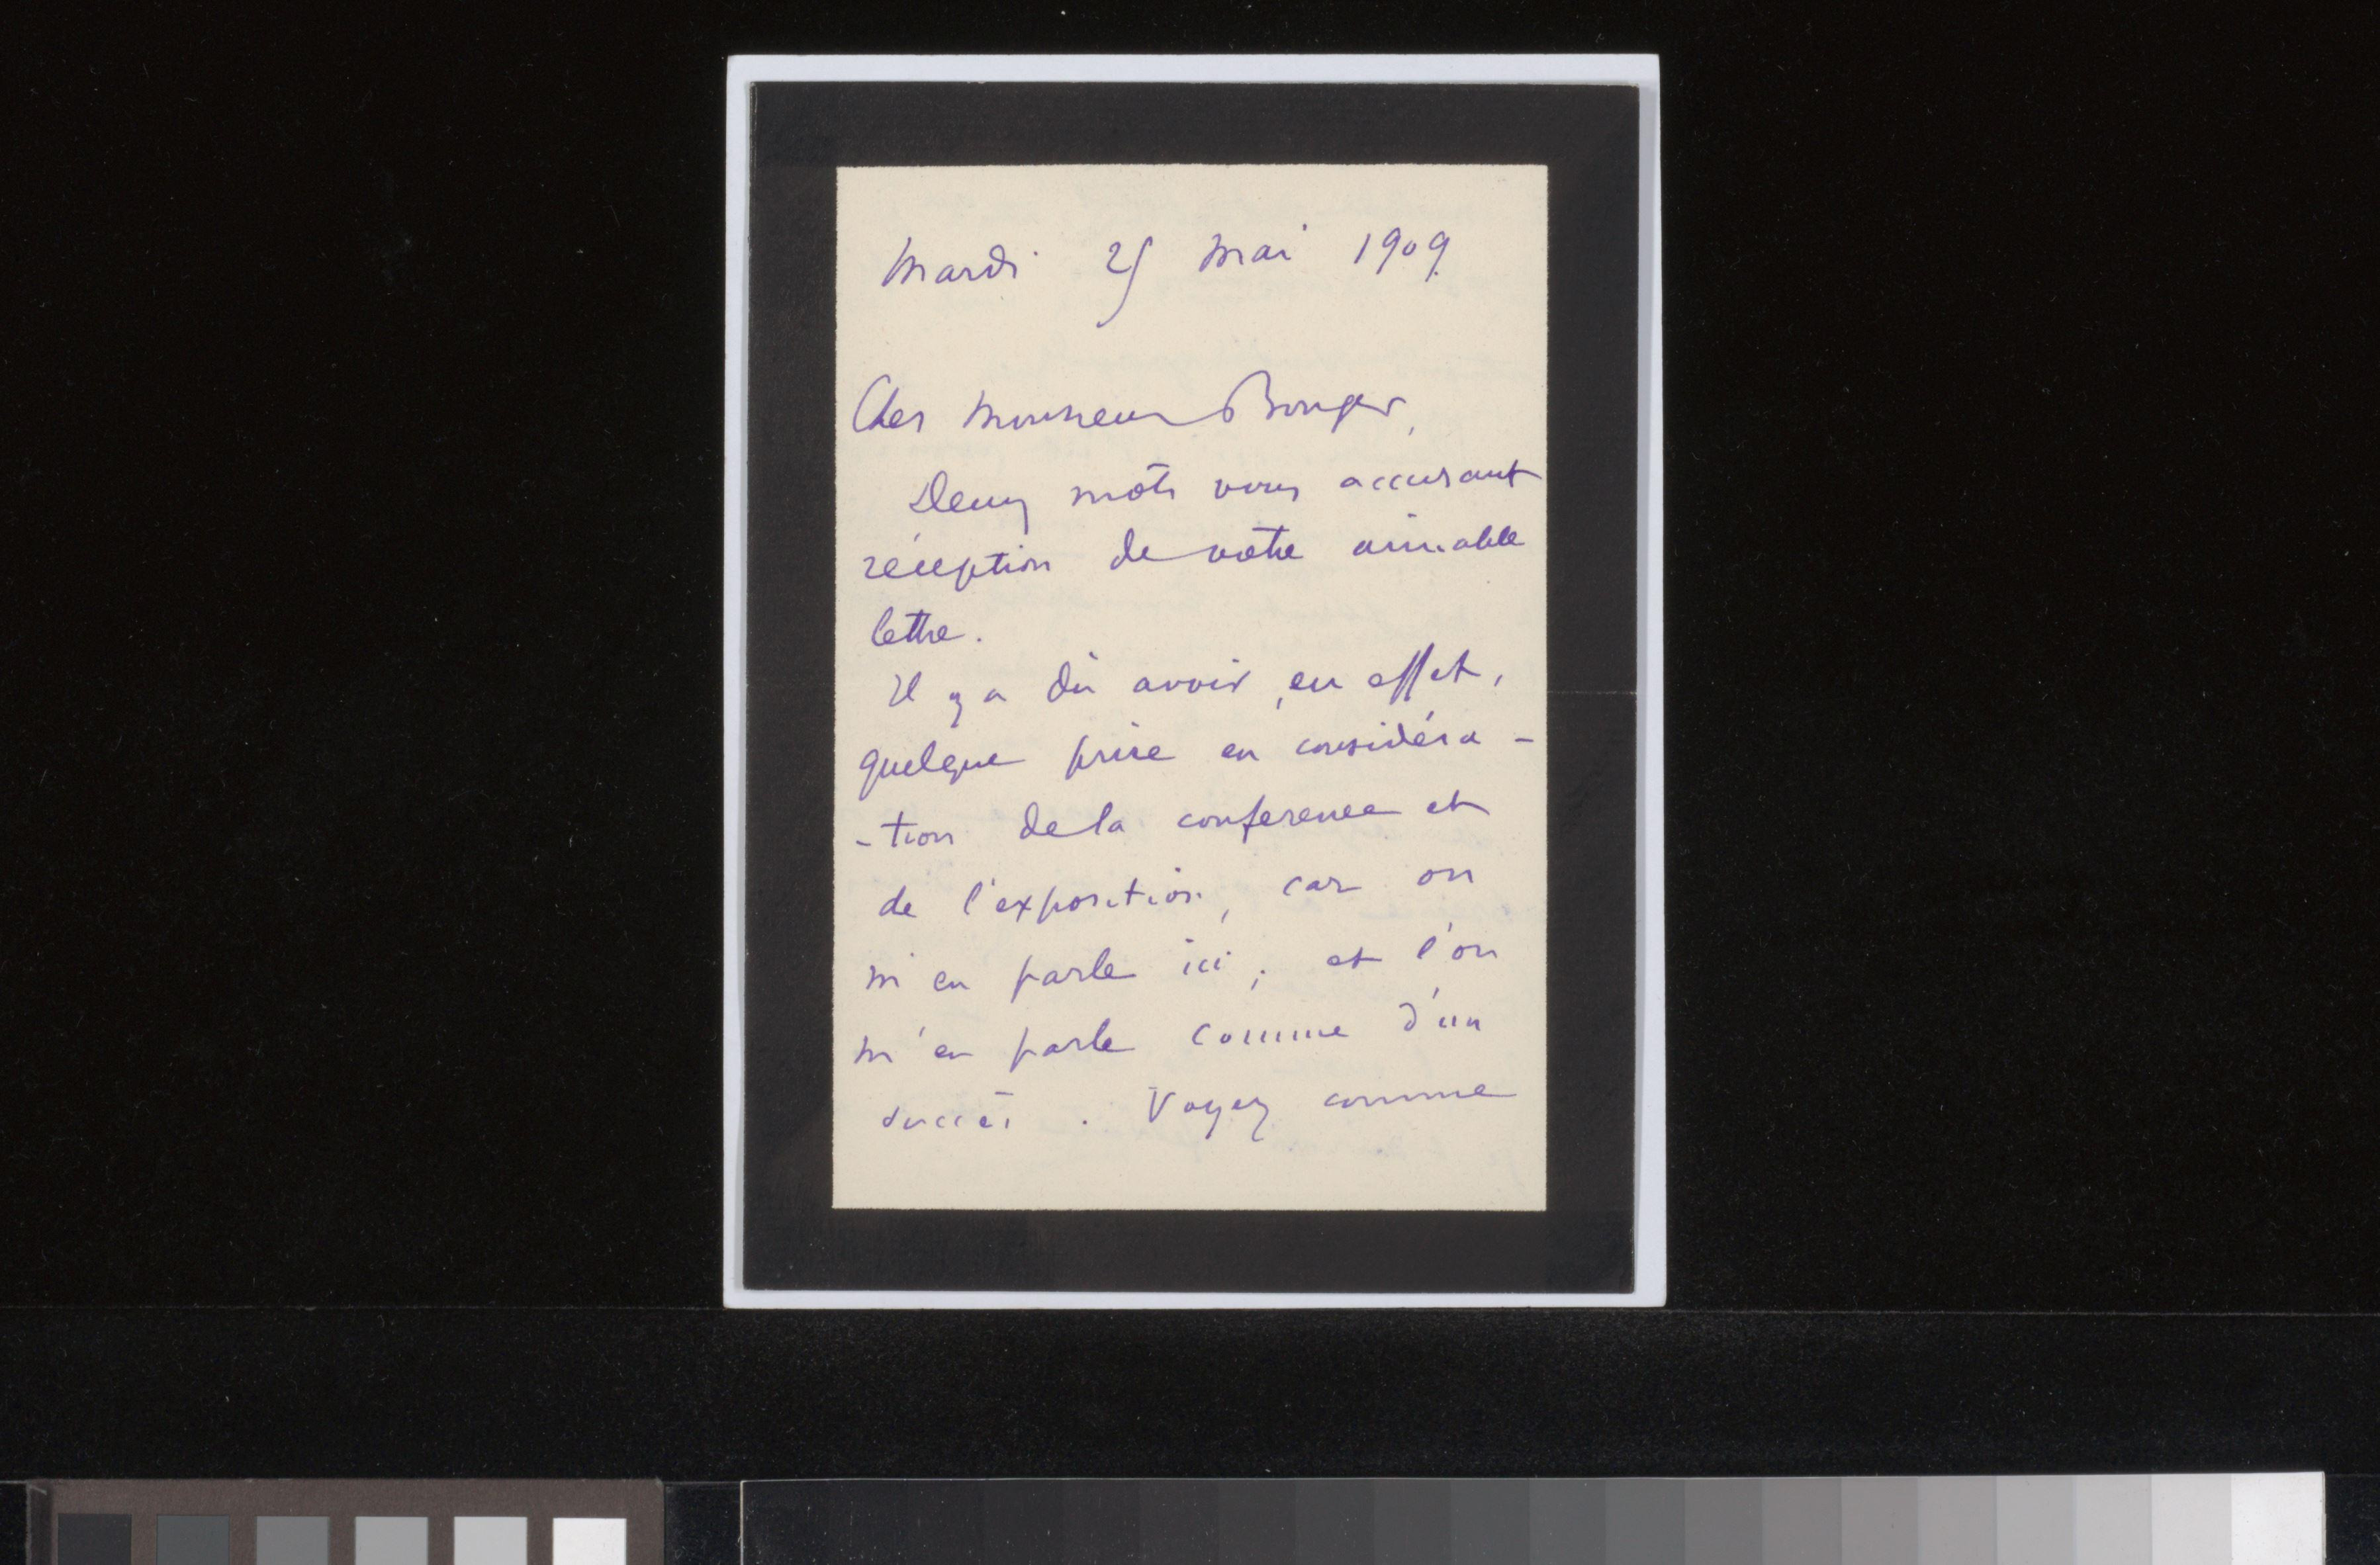 Mardi 25 Mai 1909.
Cher Monsieur Bonger,
Deux mots vous accusant
réception de votre aimable
lettre.
Il y a dû avoir, en effet,
quelque prise en considéra-
-tion de la conference et
de l'exposition, car on
m'en parle ici; et l'on
m'en parle comme d'un
succès. Voyez comme